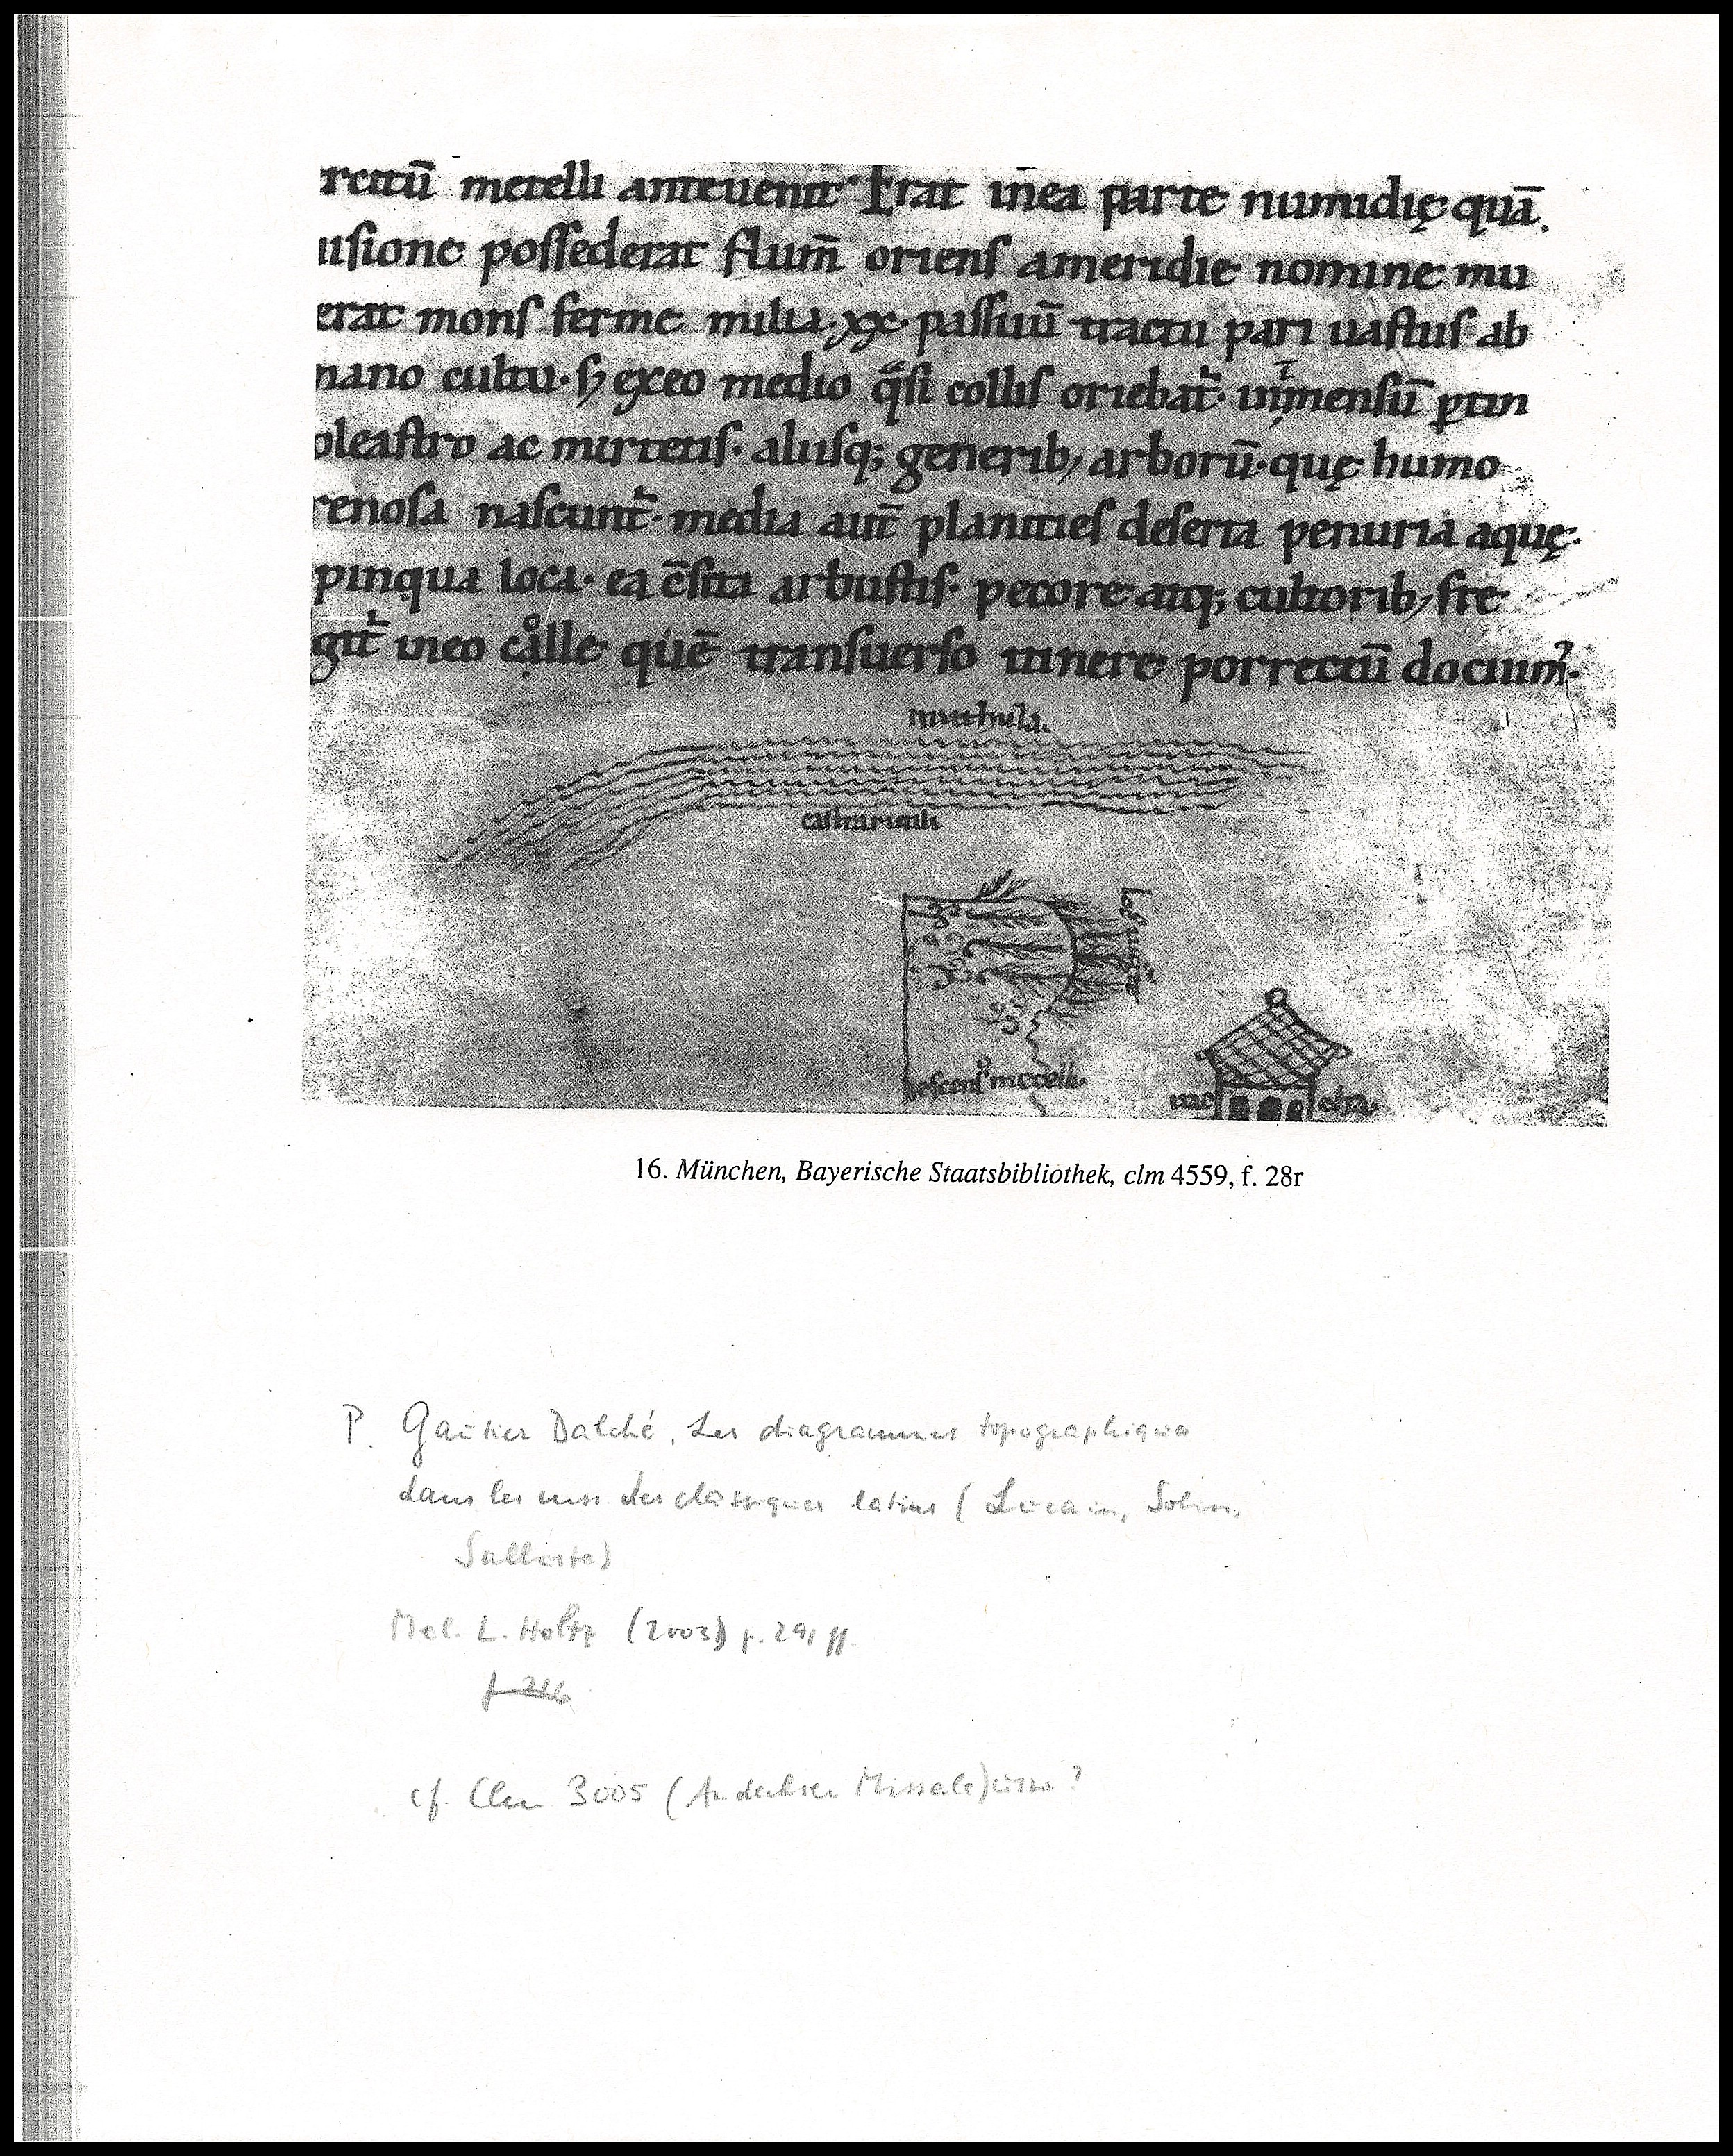 ercitū metelli anteuenit· Erat inea parte numidię quā
uisione possederat flum̄ oriens ameridie nomine mu
erat mons ferme milia·xx·passuū tractu pari uastus ab
mano cultu· sꝫ exeo medio qͣsi collis oriebat᷑· inmensū ꝑtin
oleastro ac mirtetis· aliisqꝫ generibꝫ arborū·quę humo
renosa nascunt᷑· media aut̄ planities deserta penuria aquę·
pinqua loca· ea c̄sita arbustis· pecore atqꝫ cultoribꝫ fre
git᷑ ineo colle quē transuerso itinere porrectū docuim᷒·
muthula.
castra rutili
descensꝰ metelli·
uac etha·
16. München, Bayerische Staatsbibliothek, clm 4559, f. 28r
P. Gautier Dalché, Les diagrammes topographiques
dans les mss. des classiques latins (Lucain, Solin,
Salluste)
Mel. L. Holtz (2003) p. 291 ff.
cf. Clm 3005 (Andechser Missale)